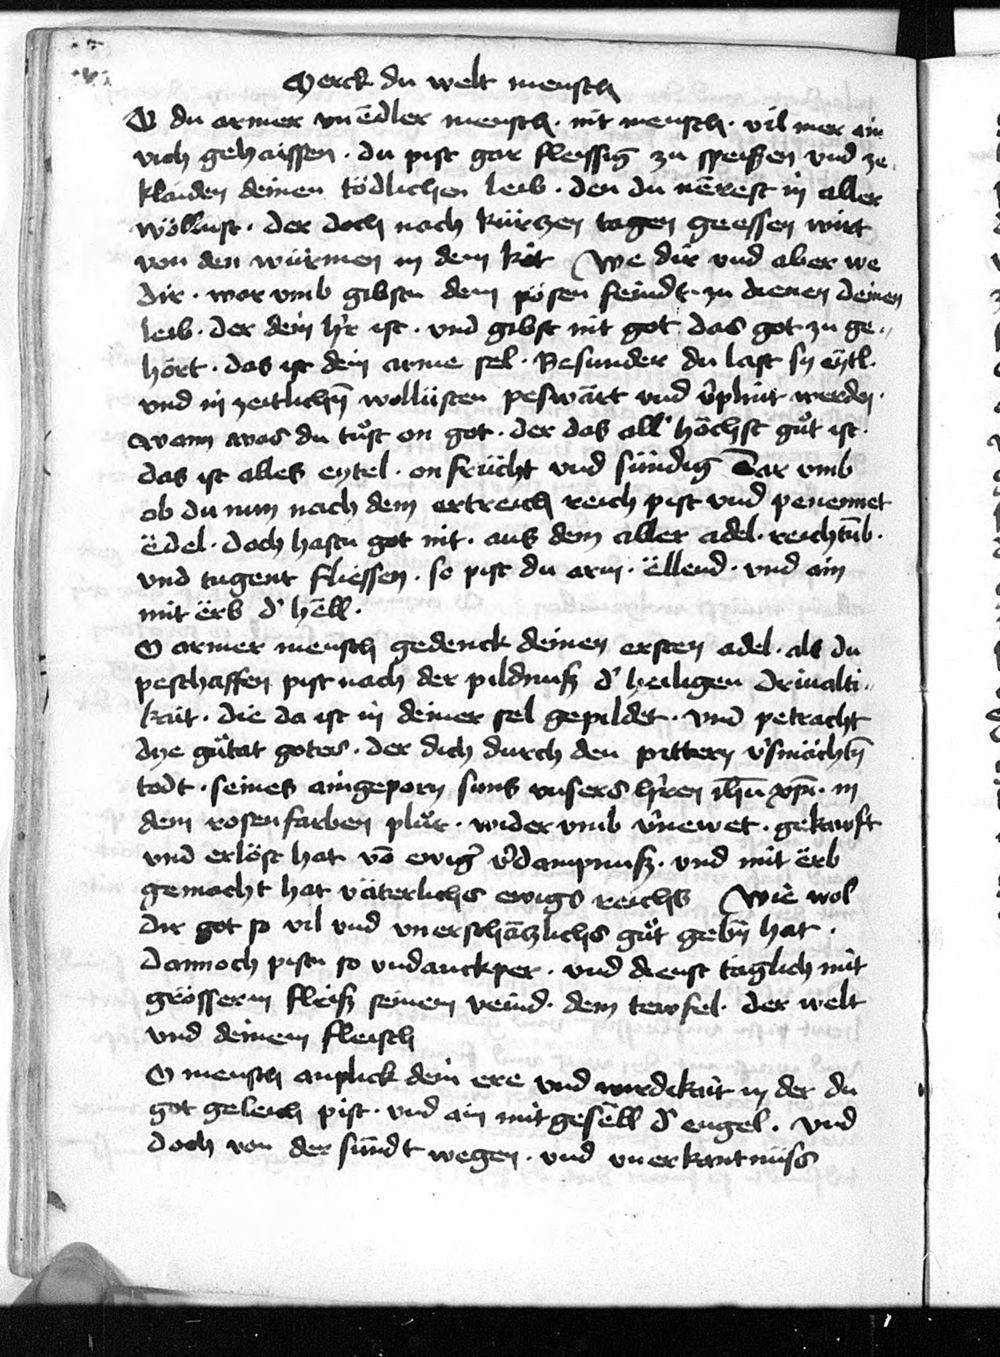 Merck du welt mensch
O du armer vnedler mensch · nit mensch · vil mer ain
vich gehaissen · du pist gar fleissig zu speißen vnd ze
klaiden deinen tödlichen leib · den du nerest in aller
wöllust · der doch nach kürtzen tagen geessen wirt
von den würmen in dem kot We dir vnd aber we
dir · wor vmb gibstu dem pösen feindt zu dienen deinen
leib · der dein h'r ist · vnd gibst nit got das got zu ge„
hört · das ist dein arme sel · Besunder du last sy eytl·
vnd in zeitlichn̄ wollüsten peswärt vnd v'plint werden ·
Wann was du tůst on got · der das all' höchst gůt ist ·
das ist alles eytel · on frücht vnd sündig Dar vmb
ob du nun nach dem ertreich reich pist vnd penennet
ëdel · doch hastu got nit · aus dem aller adel · reichtūb ·
vnd tugent fliessen · so pist du arm · ëllend · vnd ain
mit ërb d' hëll ·
O armer mensch gedenck deinen ersten adel · als du
peschaffen pist nach der pildnuß d' heiligen driualti„
kait · die da ist in deiner sel gepildet · vnd petracht
dye gůtat gotes · der dich durch den pittern v'smächtn̄
todt · seines aingeporn suns vnsers h'ren ihū xpī · in
dem rosenfarben plůt · wider vmb v'newet · gekawft
vnd erlöst hat vō ewig' v'dampnuß · vnd mit ërb
gemacht hat väterlichs ewigs reichs Wie wol
dir got so vil vnd vnerschätzlichs gůt gebn̄ hat ·
dannoch pistu so vndanckper · vnd dienst täglich mit
grösserm fleiß seinem veind · dem tewfel · der welt
vnd deinem fleisch
O mensch anplick dein ere vnd wirdikait in der du
got geleich pist · vnd ain mitgesell d' engel · vnd
doch von der sündt wegen · vnd vnerkantnüss